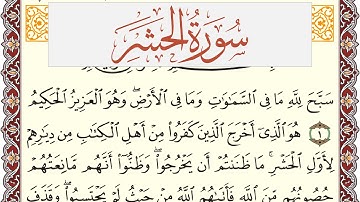 سُورَةُ الحَشْرِ
سَبَّحَ لِلَّهِ مَا فِي السَّمَاوَاتِ وَمَا فِي الْأَرْضِ ۖ وَهُوَ الْعَزِيزُ الْحَكِيمُ
۝١ هُوَ الَّذِي أَخْرَجَ الَّذِينَ كَفَرُوا مِنْ أَهْلِ الْكِتَابِ مِن دِيَارِهِمْ
لِأَوَّلِ الْحَشْرِ ۚ مَا ظَنَنتُمْ أَن يَخْرُجُوا ۖ وَظَنُّوا أَنَّهُم مَّانِعَتُهُمْ
حُصُونُهُم مِّنَ اللَّهِ فَأَتَاهُمُ اللَّهُ مِنْ حَيْثُ لَمْ يَحْتَسِبُوا ۖ وَقَذَفَ